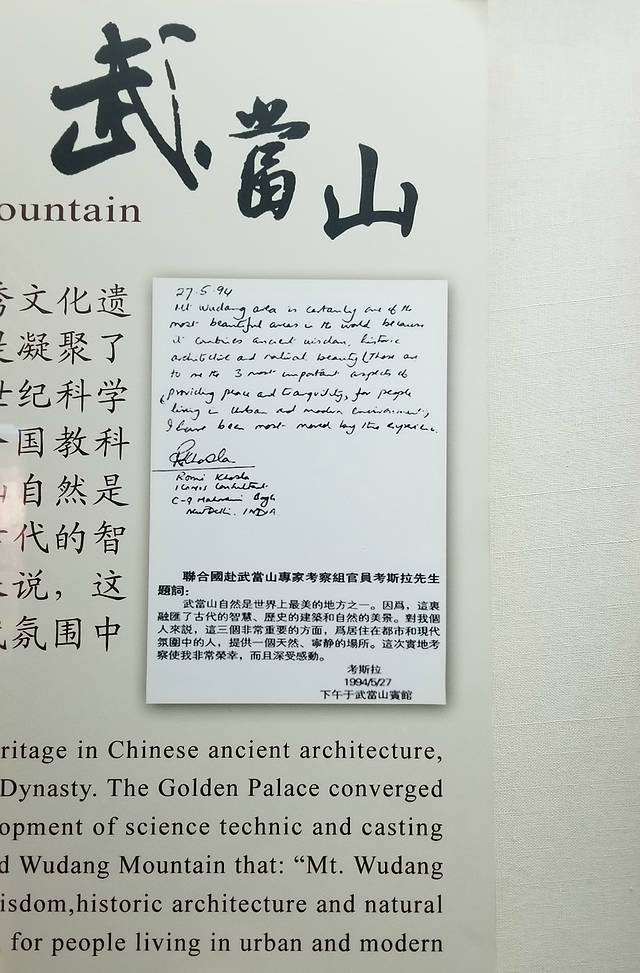 武當山
ountain
秀文化遗
是凝聚了
世纪科学
国教科
山自然是
代的智
说，这
氛围中
27.5.94
Mt Wudang area is certainly one of the
most beautiful areas in the world because
it combines ancient wisdom, historic
architecture and natural beauty (These are
to me the 3 most important aspects of
providing peace and tranquility, for people
living in urban and modern environments,
I have been most moved by this experience.
RKhosla
Romi Khosla
ICOMOS Consultant
C-9 Maharani Bagh
New Delhi. INDIA
聯合國赴武當山專家考察組官員考斯拉先生
題詞：
武當山自然是世界上最美的地方之一。因爲，這裏
融匯了古代的智慧、歷史的建築和自然的美景。對我個
人來説，這三個非常重要的方面，爲居住在都市和現代
氛圍中的人，提供一個天然、寧静的場所。這次實地考
察使我非常榮幸，而且深受感動。
考斯拉
1994/5/27
下午于武當山賓館
ritage in Chinese ancient architecture,
Dynasty. The Golden Palace converged
opment of science technic and casting
d Wudang Mountain that: “Mt. Wudang
isdom,historic architecture and natural
, for people living in urban and modern